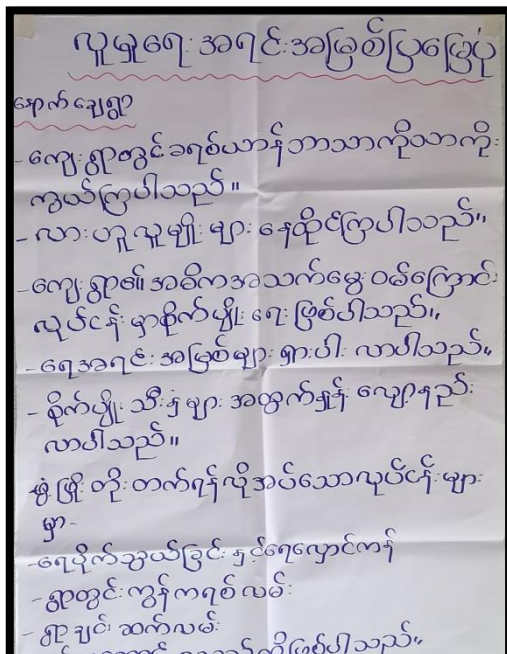 လူမှုရေး အရင်းအမြစ်ပြမြေပုံ
နောက်ချေရွာ
-ကျေးရွာတွင်ခရစ်ယာန်ဘာသာကိုသာကိုး
ကွယ်ကြပါသည်။
- လားဟူလူမျိုးများ နေထိုင်ကြပါသည်။
-ကျေးရွာ၏ အဓိကအသက်မွေးဝမ်းကြောင်း
လုပ်ငန်းမှာစိုက်ပျိုးရေးဖြစ်ပါသည်။
-ရေအရင်းအမြစ်များ ရှားပါးလာပါသည်။
- စိုက်ပျိုးသီးနှံများ အထွက်နှုန်းလျော့နည်း
လာပါသည်။
ဖွံ့ဖြိုးတိုးတက်ရန်လိုအပ်သောလုပ်ငန်းများ
မှာ-
-ရေပိုက်သွယ်ခြင်းနှင့်ရေလှောင်ကန်
-ရွာတွင်းကွန်ကရစ်လမ်း
-ရွာချင်းဆက်လမ်း